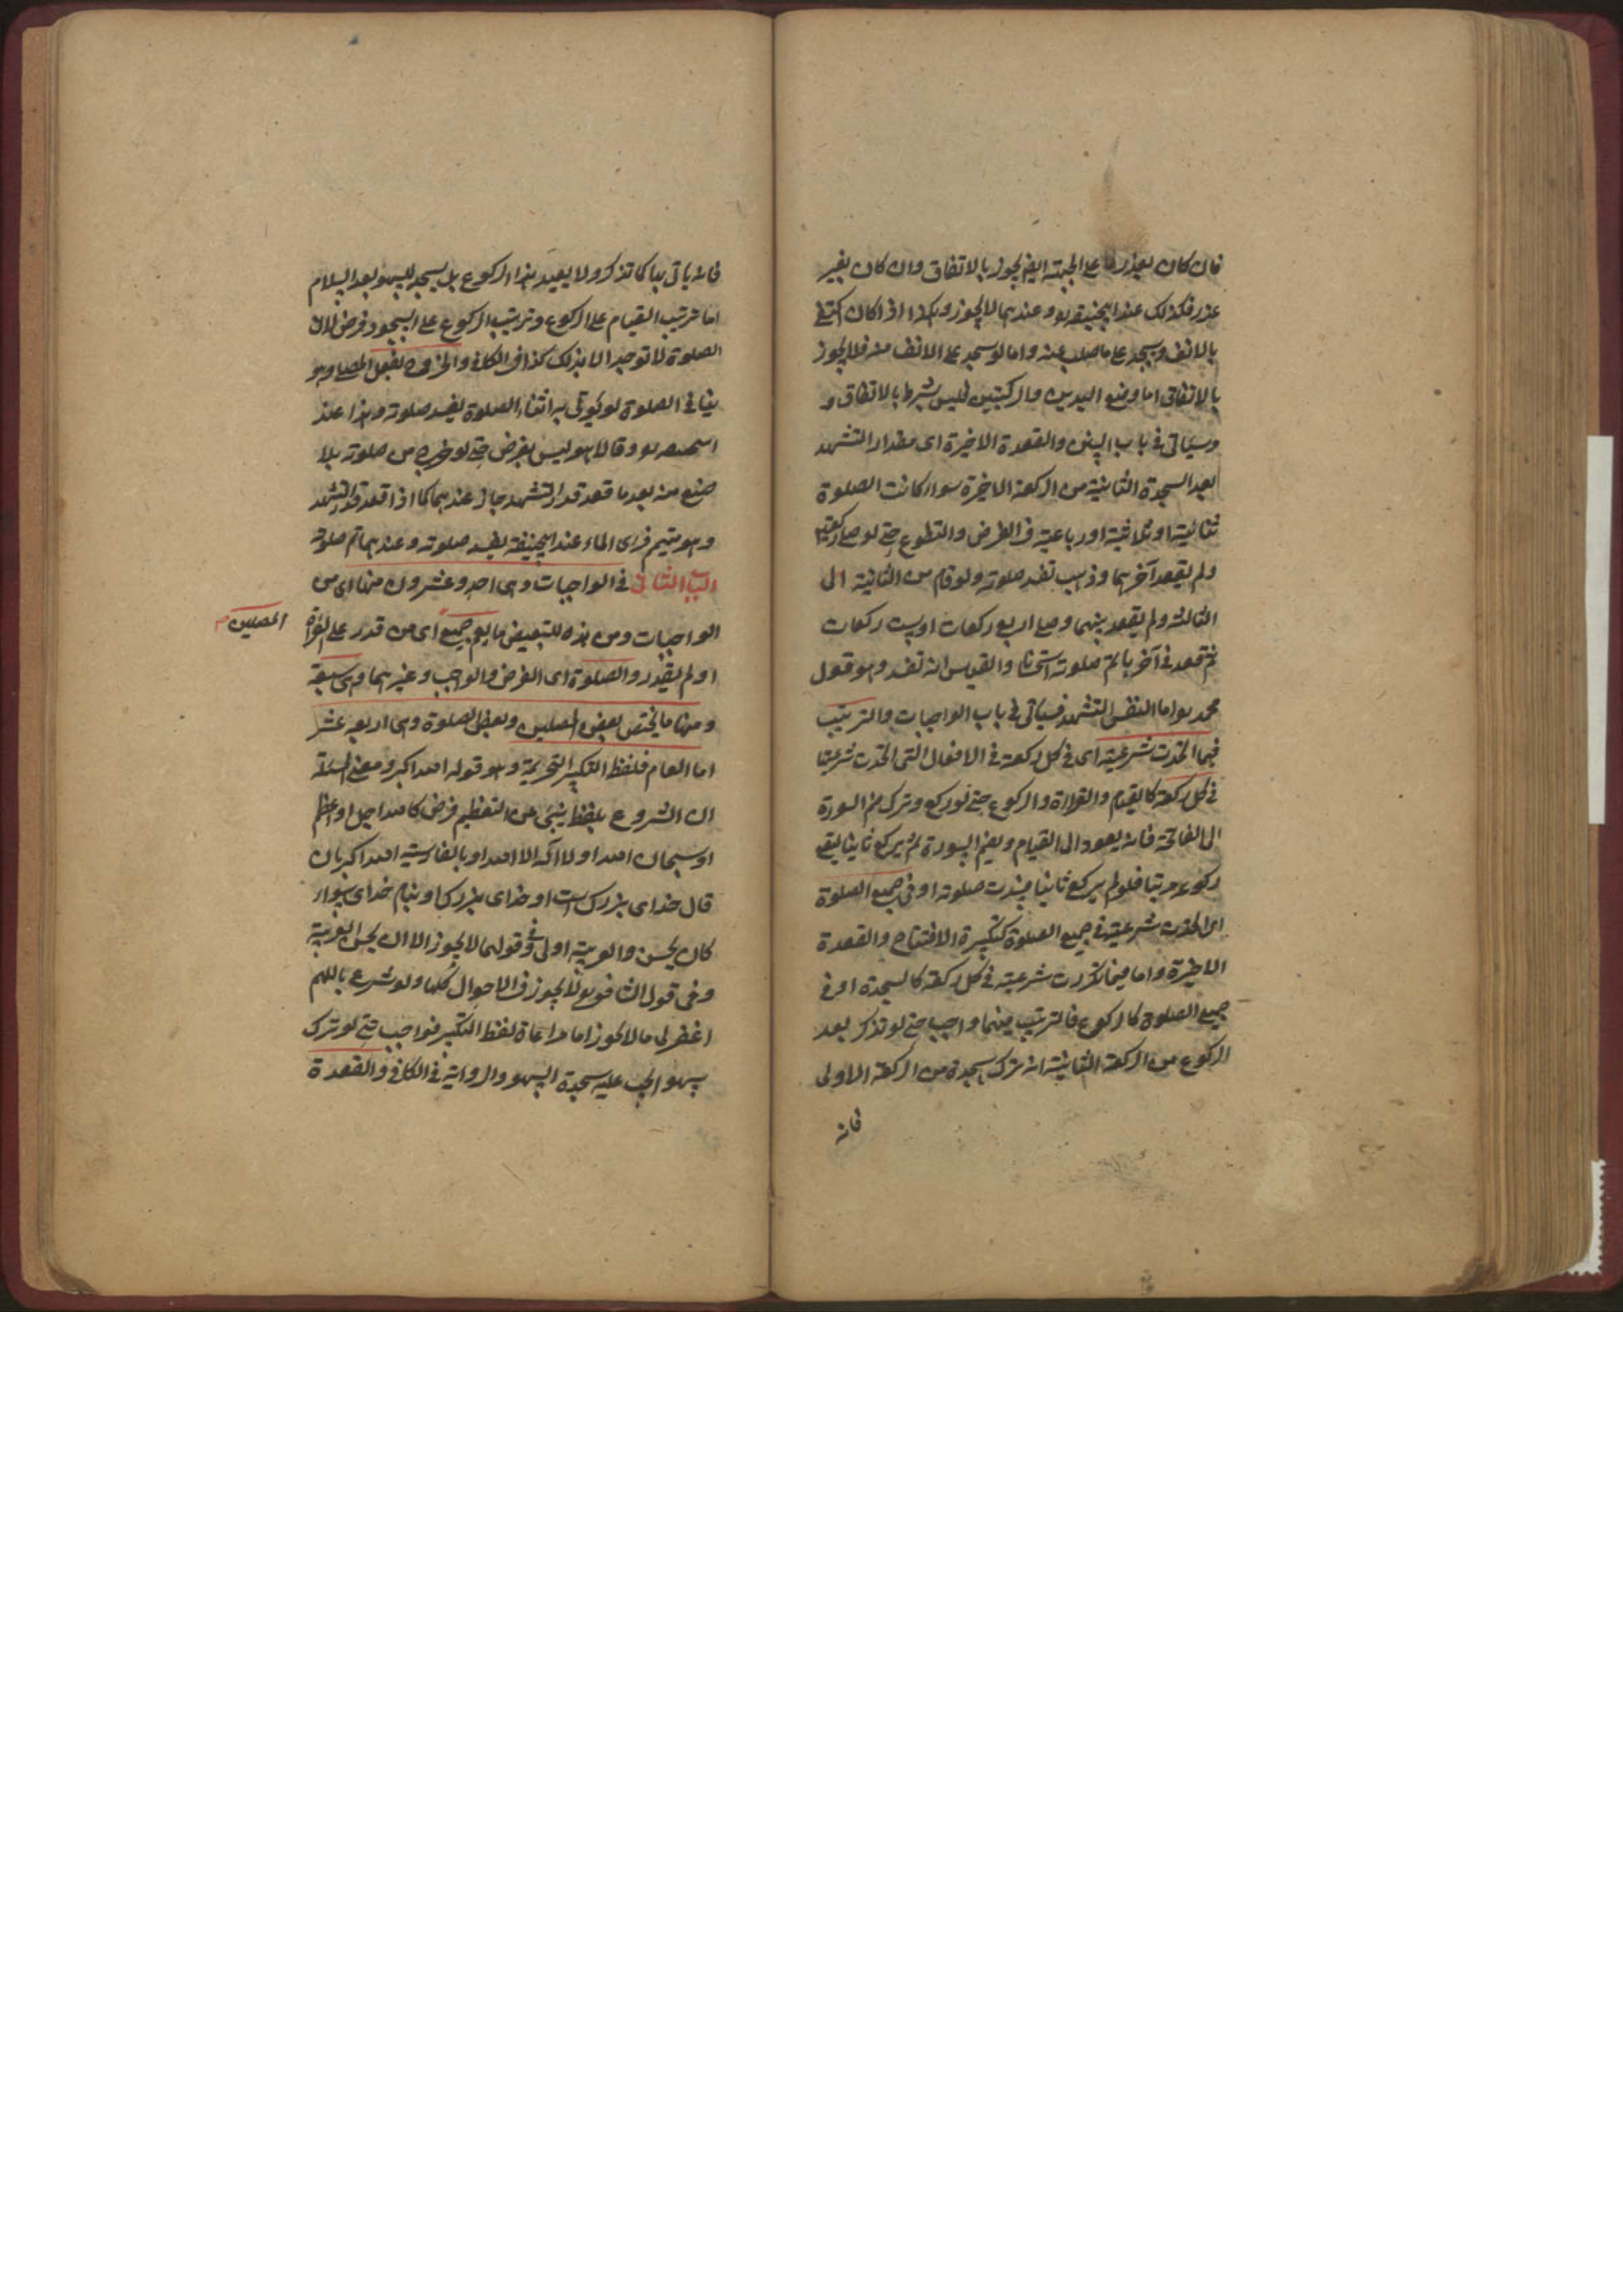 فان كان بعذر على الجبهة ايضا يجوز بالاتفاق وان كان بغير
عذر فكذلك عند ابيحنيفة وعندهما لا يجوز وهكذا اذا كان اكتفى
بالانف وسجد على ما صلب منه واما لو سجد على الانف منه فلا يجوز
بالاتفاق اما وضع اليدين والركبتين فليس بشرط بالاتفاق و
وسياتى فى باب السنن والقعدة الاخيرة اى مقدار التشهد
بعد السجدة الثانية من الركعة الاخيرة سواء كانت الصلوة
ثنائية او ثلاثية او رباعية فى الفرض والتطوع حتى لو صلى ركعتين
ولم يقعد آخرهما وذهب تفسد صلوته ولو قام من الثانية الى
الثالثة ولم يقعد بينهما وصلى اربع ركعات او ست ركعات
ثم قعد فى آخرها تم صلوته استحسانا والقياس انه تفسد وهو قول
محمد اما النفس التشهد فسياتى فى باب الواجبات والترتيب
فيما اتحدت شرعيته اى فى كل ركعة فى الافعال التى اتحدت شرعيتها
فى كل ركعة كالقيام والقراءة والركوع حتى لو ركع وترك ضم السورة
الى الفاتحة فانه يعود الى القيام ويضم السورة ثم يركع ثانيا ليقع
ركوعه مرتبا فلو لم يركع ثانيا فسدت صلوته او فى جميع الصلوة
اى اتحدت شرعيته فى جميع الصلوة كتكبيرة الافتتاح والقعدة
الاخيرة واما فيما تكررت شرعيته فى كل ركعة كالسجدة او فى
جميع الصلوة كالركوع فالترتيب فيهما واجب حتى لو تذكر بعد
الركوع من الركعة الثانية انه ترك سجدة من الركعة الاولى
فانه
فانه ياتى بها كما تذكر ولا يعيد هذا الركوع بل يسجد للسهو بعد السلام
اما ترتيب القيام على الركوع وترتيب الركوع على السجود فرض لان
الصلوة لا توجد الا بذلك كذا فى الكافى والخروج بفعل المصلى وهو
ينافى الصلوة لو يؤتى به اثناء الصلوة يفسد صلوته وهذا عند
وقالا هو ليس بفرض حتى لو خرج من صلوته بلا
صنع منه بعد ما قعد قدر التشهد جاز عندهما كما اذا قعد قدر التشهد
وهو متيمم فراى الماء عند ابيحنيفة يفسد صلوته وعندهما تم صلوته
الباب الثانى فى الواجبات وهى احد وعشرون منها اى من
الواجبات ومن هذه للتبعيض ما يعم جميع اى من قدر على القراة
المصلين
او لم يقدر والصلوة اى الفرض والواجب وغيرهما وهى سبعة
ومنها ما يختص بعض المصلين وبعض الصلوة وهى اربعة عشر
اما العام فلفظ التكبير التحريمة وهو قوله الله اكبر ومعنى المسئلة
ان الشروع بلفظ ينبئ عن التعظيم فرض كالله اجل او اعظم
او سبحان الله او لا اله الا الله او بالفارسية الله اكبر بان
قال خداى بزرك است او خداى بزرك او بنام خداى سواء
كان يحسن والعربية اولى وفى قولهما لا يجوز الا ان لا يحسن العربية
وفى قول الشافعى لا يجوز فى الاحوال كلها ولو شرع باللهم
اغفر لى ما لا يجوز اما مراعاة لفظ التكبير فواجب حتى لو ترك
سهوا يجب عليه سجدة السهو والرواية فى الكافى والقعدة